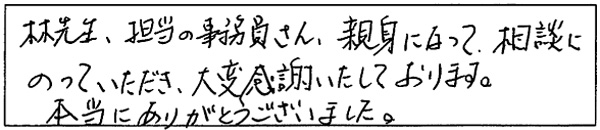 林先生、担当の事務員さん、親身になって、相談に
のっていただき、大変感謝いたしております。
本当にありがとうございました。